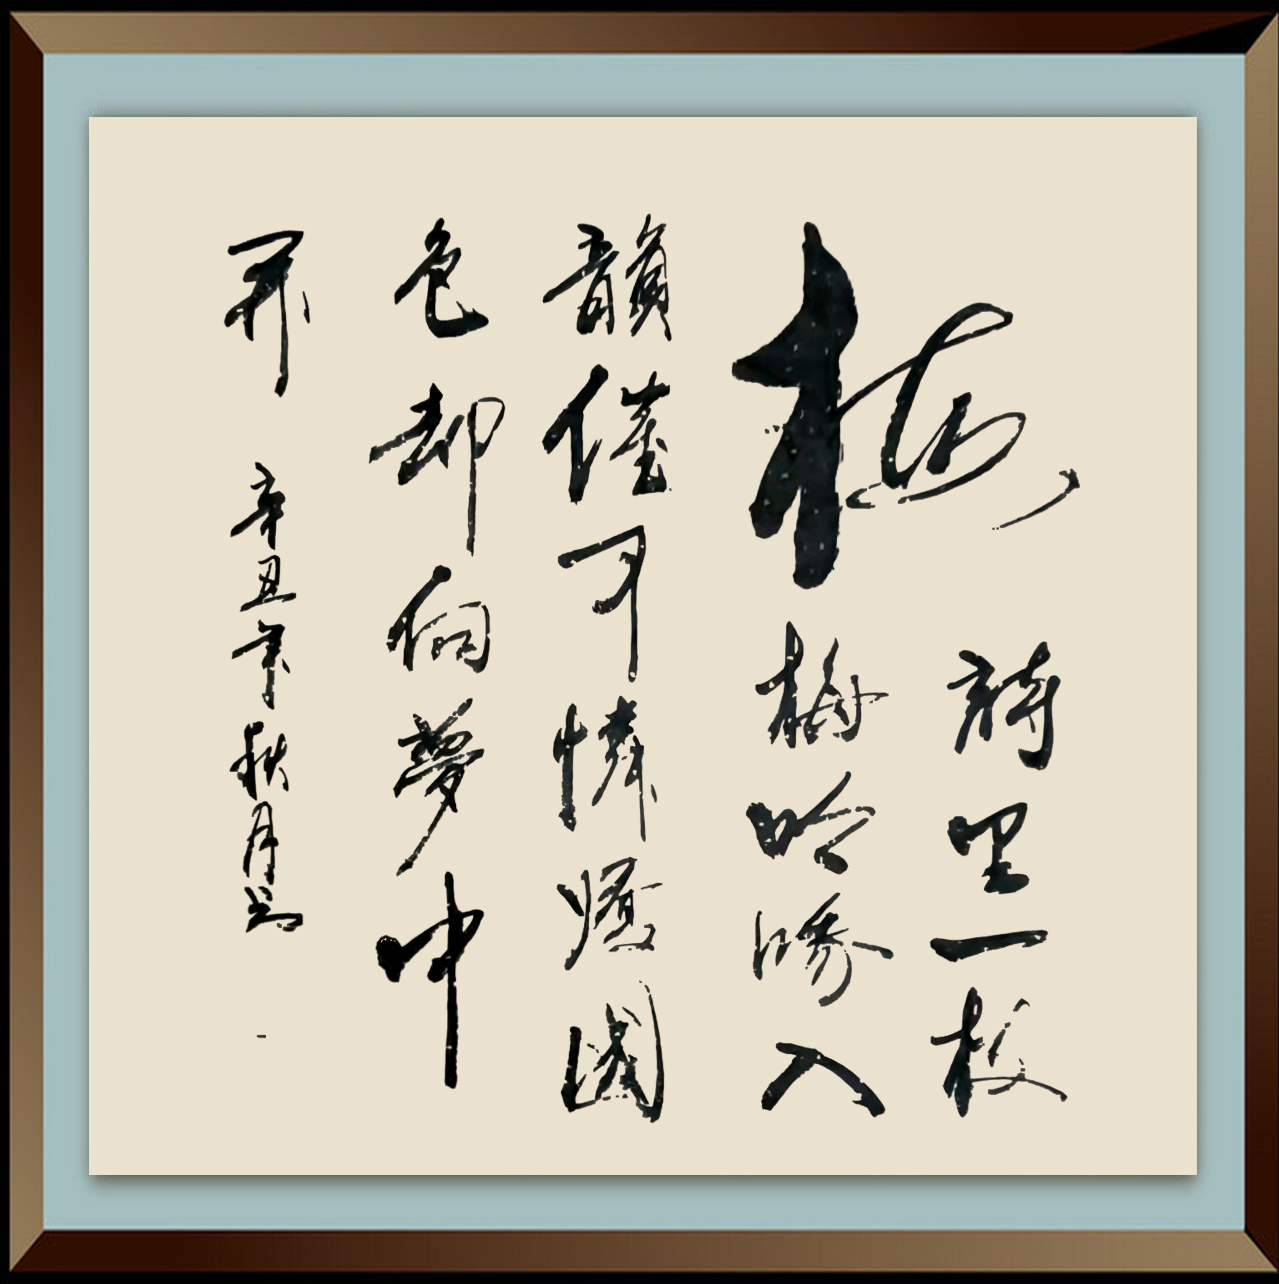 梅
詩里一枝
梅吟入
韻催可憐國
色却向夢中
開 辛丑年秋月